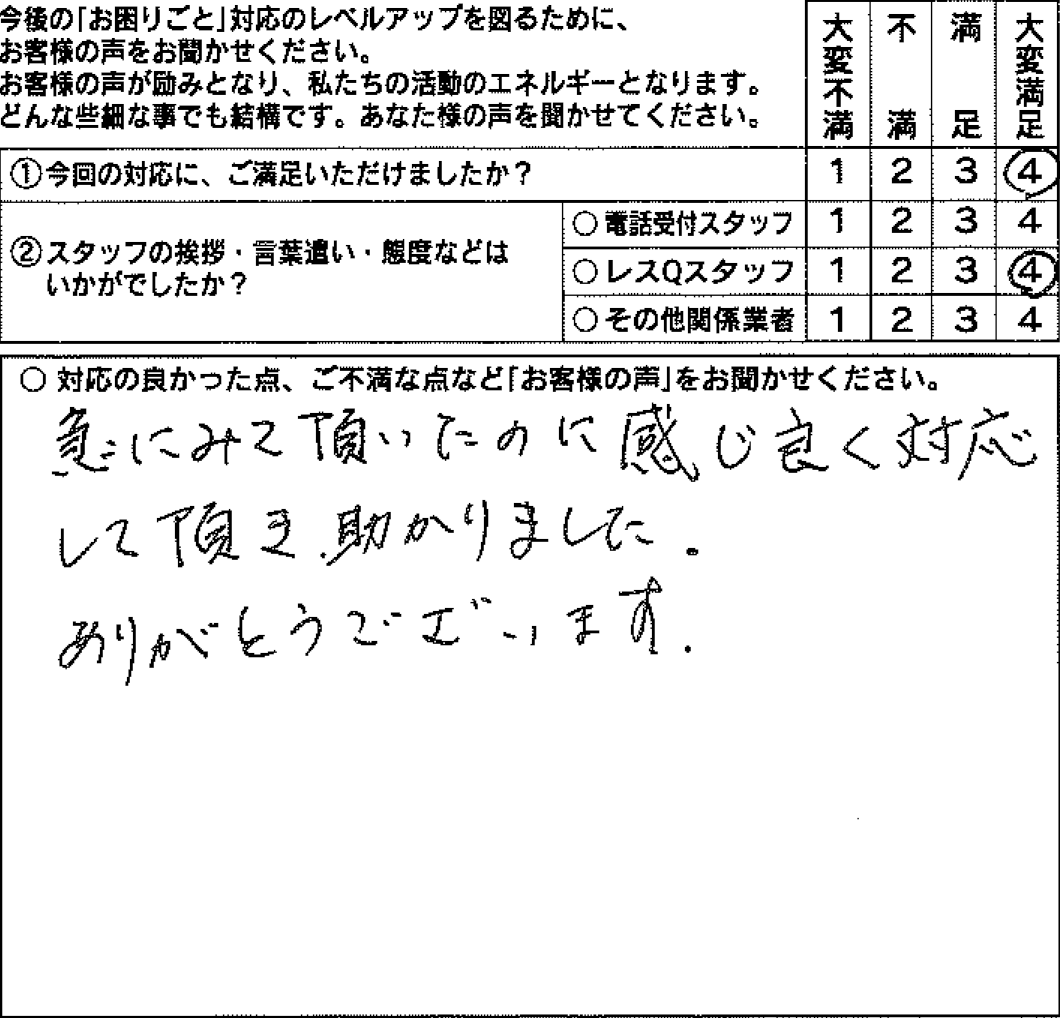 今後の「お困りごと」対応のレベルアップを図るために、
お客様の声をお聞かせください。
お客様の声が励みとなり、私たちの活動のエネルギーとなります。
どんな些細な事でも結構です。あなた様の声を聞かせてください。
大変不満 不満 満足 大変満足
①今回の対応に、ご満足いただけましたか？ 1 2 3 4
②スタッフの挨拶・言葉遣い・態度などは
いかがでしたか？
○電話受付スタッフ 1 2 3 4
○レスQスタッフ 1 2 3 4
○その他関係業者 1 2 3 4
○ 対応の良かった点、ご不満な点など「お客様の声」をお聞かせください。
急にみて頂いたのに感じ良く対応
して頂き、助かりました.
ありがとうございます.